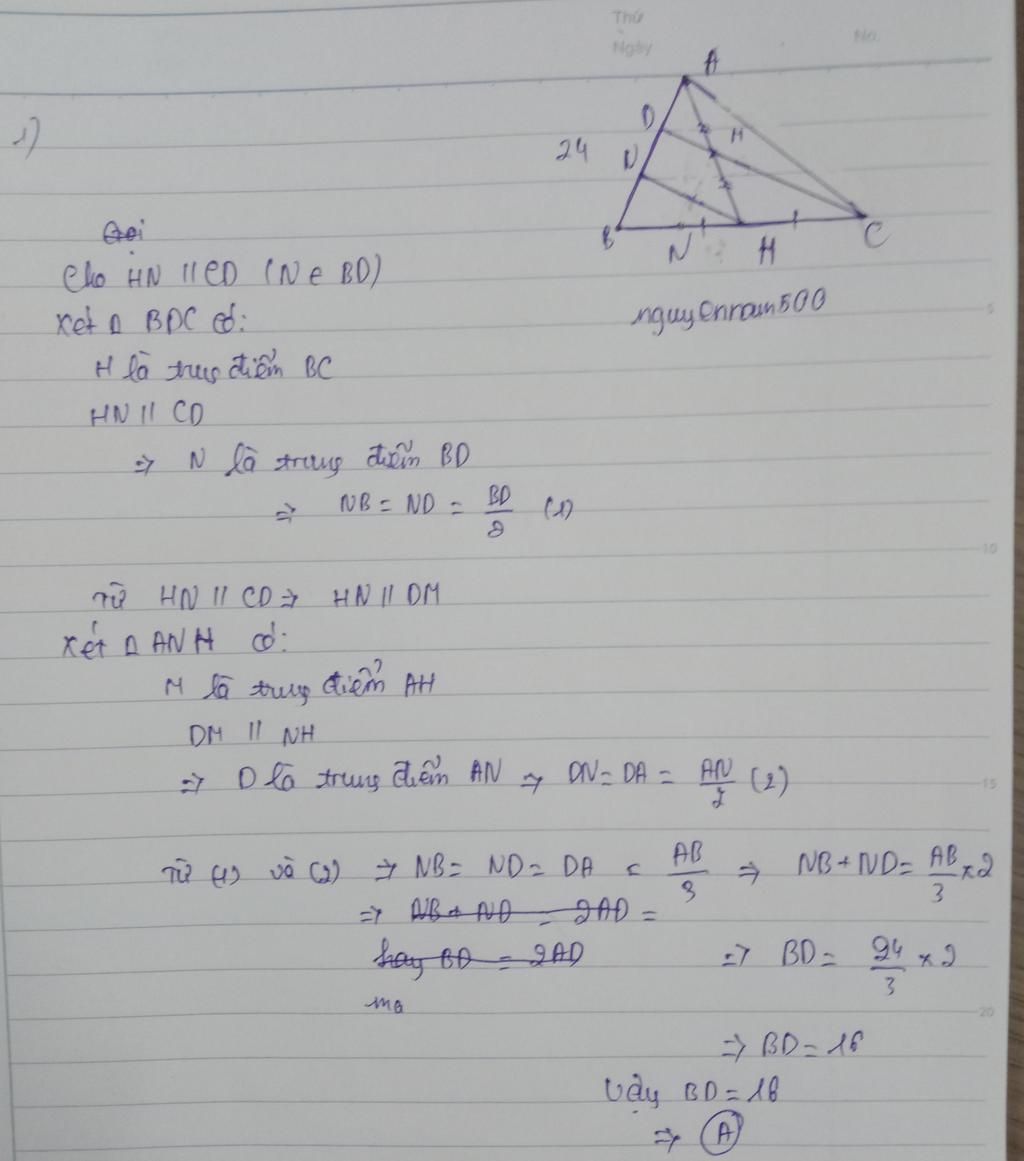 Thứ
Ngày
No.
1)
A
D
M
24
N
B
N
H
C
Gọi
Cho HN // CD (N ∈ BD)
Xét Δ BDC có:
nguyenram500
H là trug điểm BC
HN // CD
=> N là trung điểm BD
=> NB = ND = BD/2 (1)
Từ HN // CD => HN // DM
Xét Δ ANH có:
M là trug điểm AH
DM // NH
=> D là trung điểm AN => DN = DA = AN/2 (2)
Từ (1) và (2) => NB = ND = DA = AB/3 => NB + ND = AB/3 x 2
=> NB + ND = 2AD =
hay BD = 2AD => BD = 24/3 x 2
ma
=> BD = 16
Vậy BD = 16
=> A
5
10
15
20